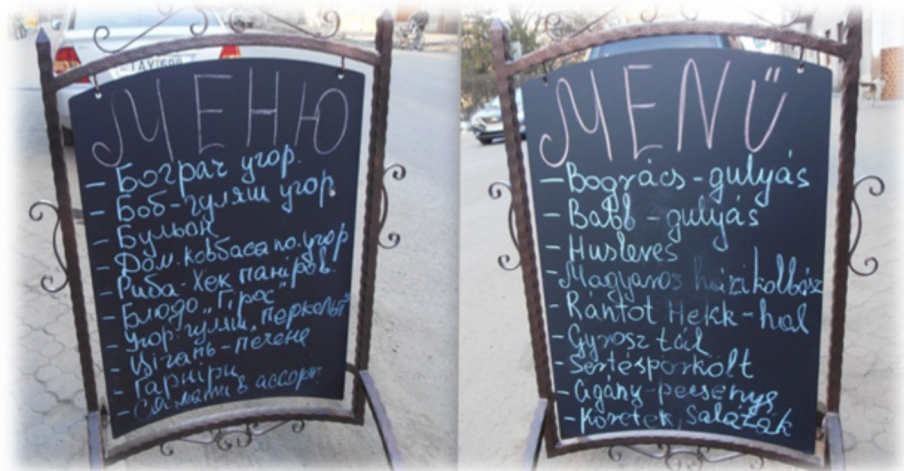 МЕНЮ
- Бограч угор.
- Боб-гуляш угор.
- Бульон
- Дом. ковбаса по. угор
- Риба-Хек паніров.
- Блюдо „Гірос"
- Угор. гуляш „перкольт"
- Цігань-печене
- Гарніри
- Салати в ассорт.
MENÜ
- Bogrács-gulyás
- Babb-gulyás
- Husleves
- Magyaros házikolbász
- Rántot Hekk-hal
- Gyrosz tál
- Sertésporkolt
- Cigány-pecsenye
- Köretek, Saláták